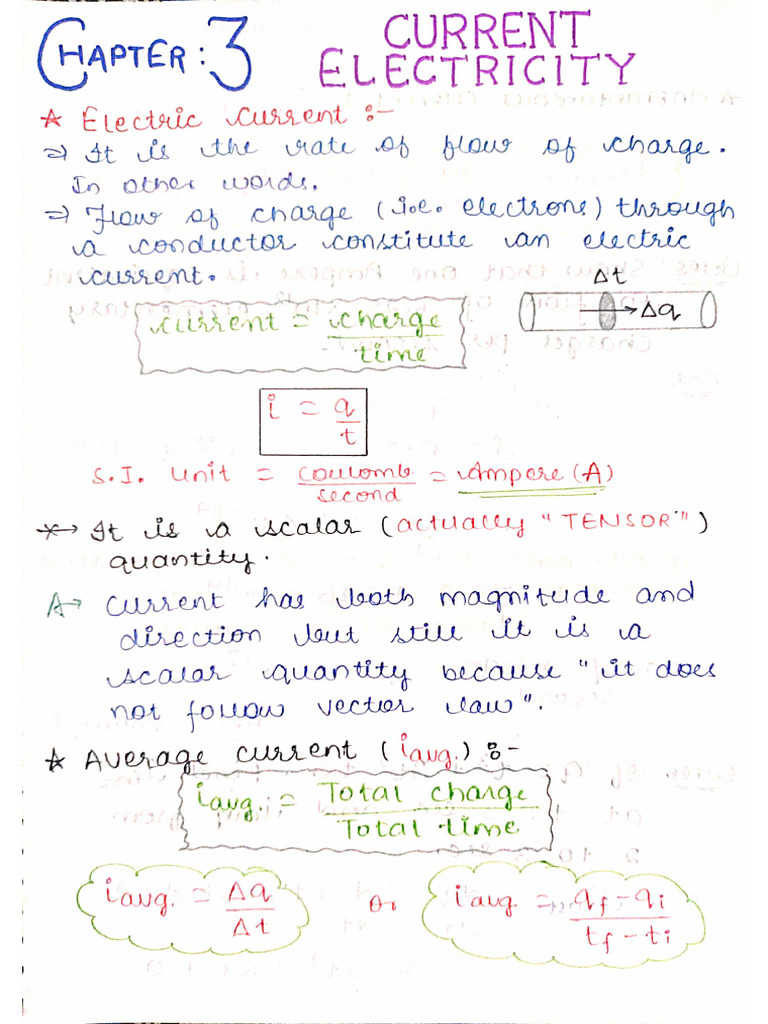 CHAPTER: 3 CURRENT ELECTRICITY
☆ Electric current :-
⇒ It is the rate of flow of charge.
In other words,
⇒ Flow of charge (i.e. electrons) through
a conductor constitute an electric
current.
Δt
current = charge/time
→Δq
i = q/t
S.I. Unit = coulomb/second = Ampere (A)
*→ It is a scalar (actually "TENSOR")
quantity.
A→ current has both magnitude and
direction but still it is a
scalar quantity because "it does
not follow vector law".
☆ Average current (iavg.) :-
iavg. = Total charge/Total time
iavg. = Δq/Δt or iavg. = qf-qi/tf-ti